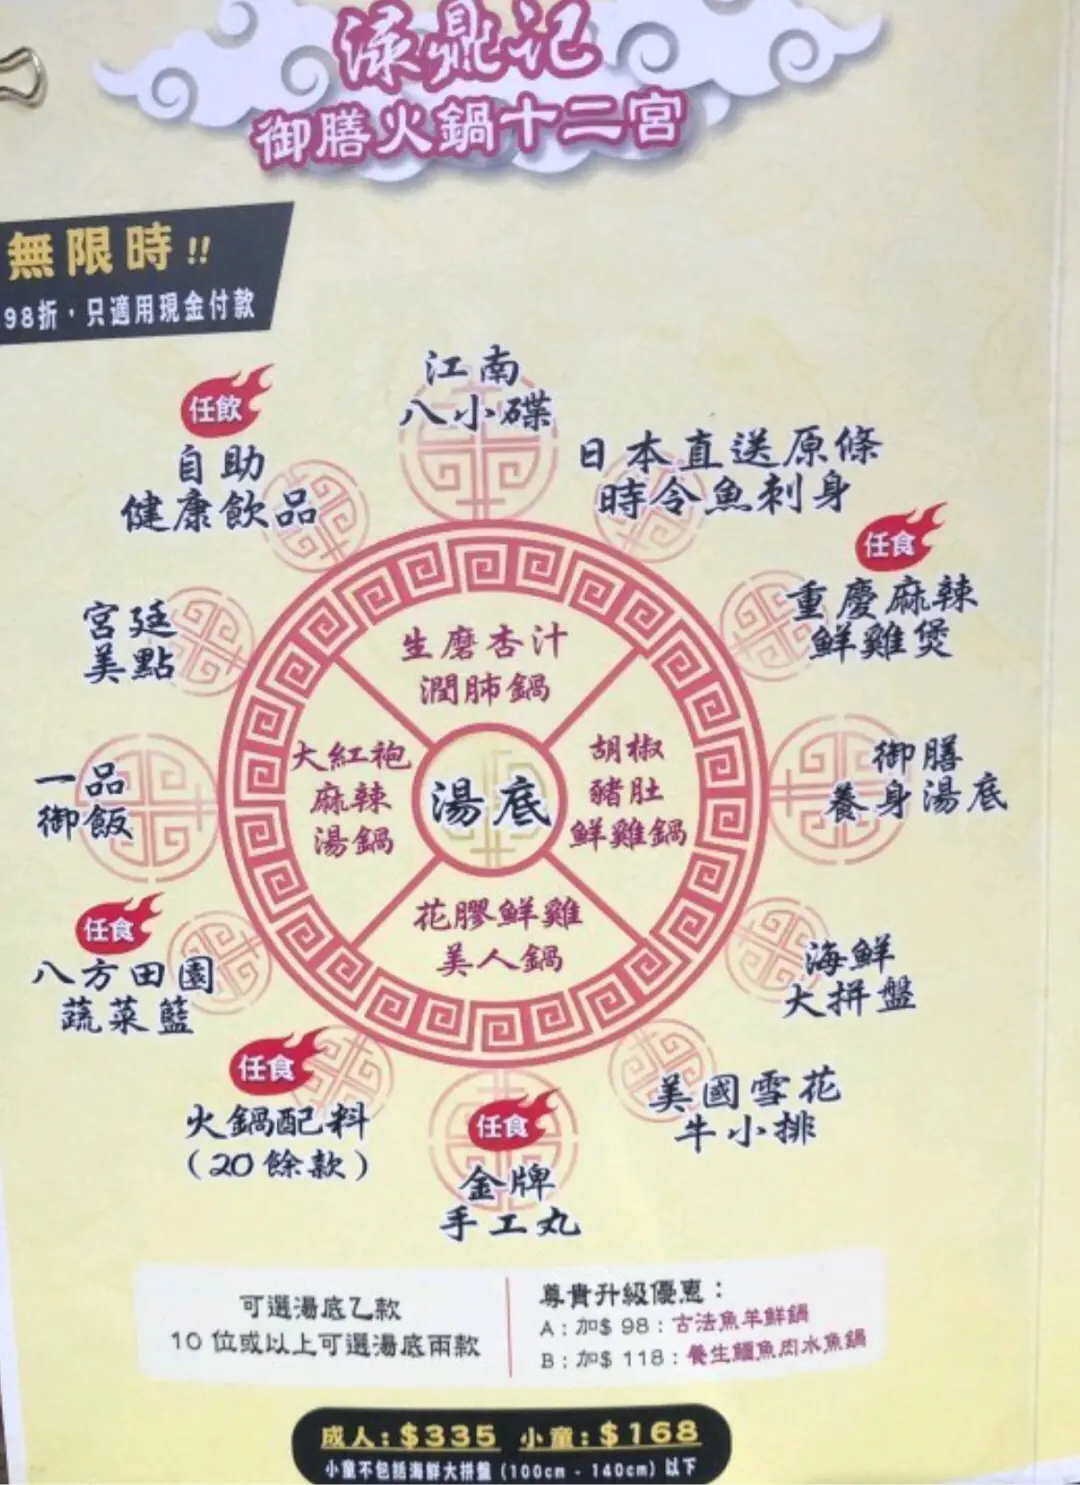 渌鼎记
御膳火鍋十二宮
無限時!!
98折，只適用現金付款
江南
八小碟
任飲
自助
健康飲品
日本直送原條
時令魚刺身
任食
重慶麻辣
鮮雞煲
宮廷
美點
生磨杏汁
潤肺鍋
大紅袍
麻辣
湯鍋
湯底
胡椒
豬肚
鮮雞鍋
御膳
養身湯底
一品
御飯
花膠鮮雞
美人鍋
任食
八方田園
蔬菜籃
海鮮
大拼盤
任食
火鍋配料
(20餘款)
美國雪花
牛小排
任食
金牌
手工丸
可選湯底乙款
10位或以上可選湯底兩款
尊貴升級優惠：
A：加$ 98：古法魚羊鮮鍋
B：加$ 118：養生鱷魚肉水魚鍋
成人：$335 小童：$168
小童不包括海鮮大拼盤（100cm - 140cm）以下